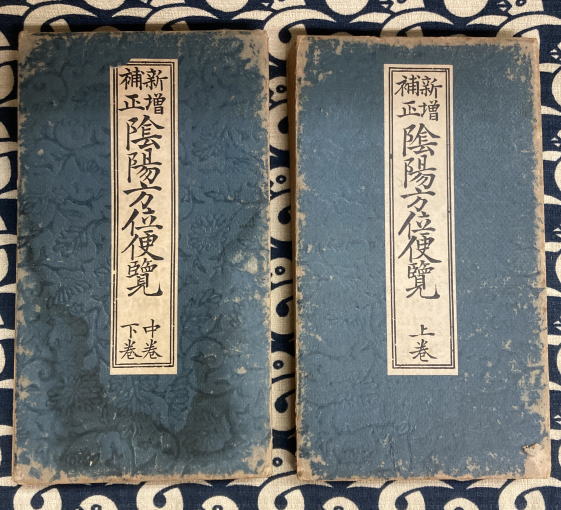 新増
補正
陰陽方位便覽
上巻
新増
補正
陰陽方位便覽
中巻
下巻